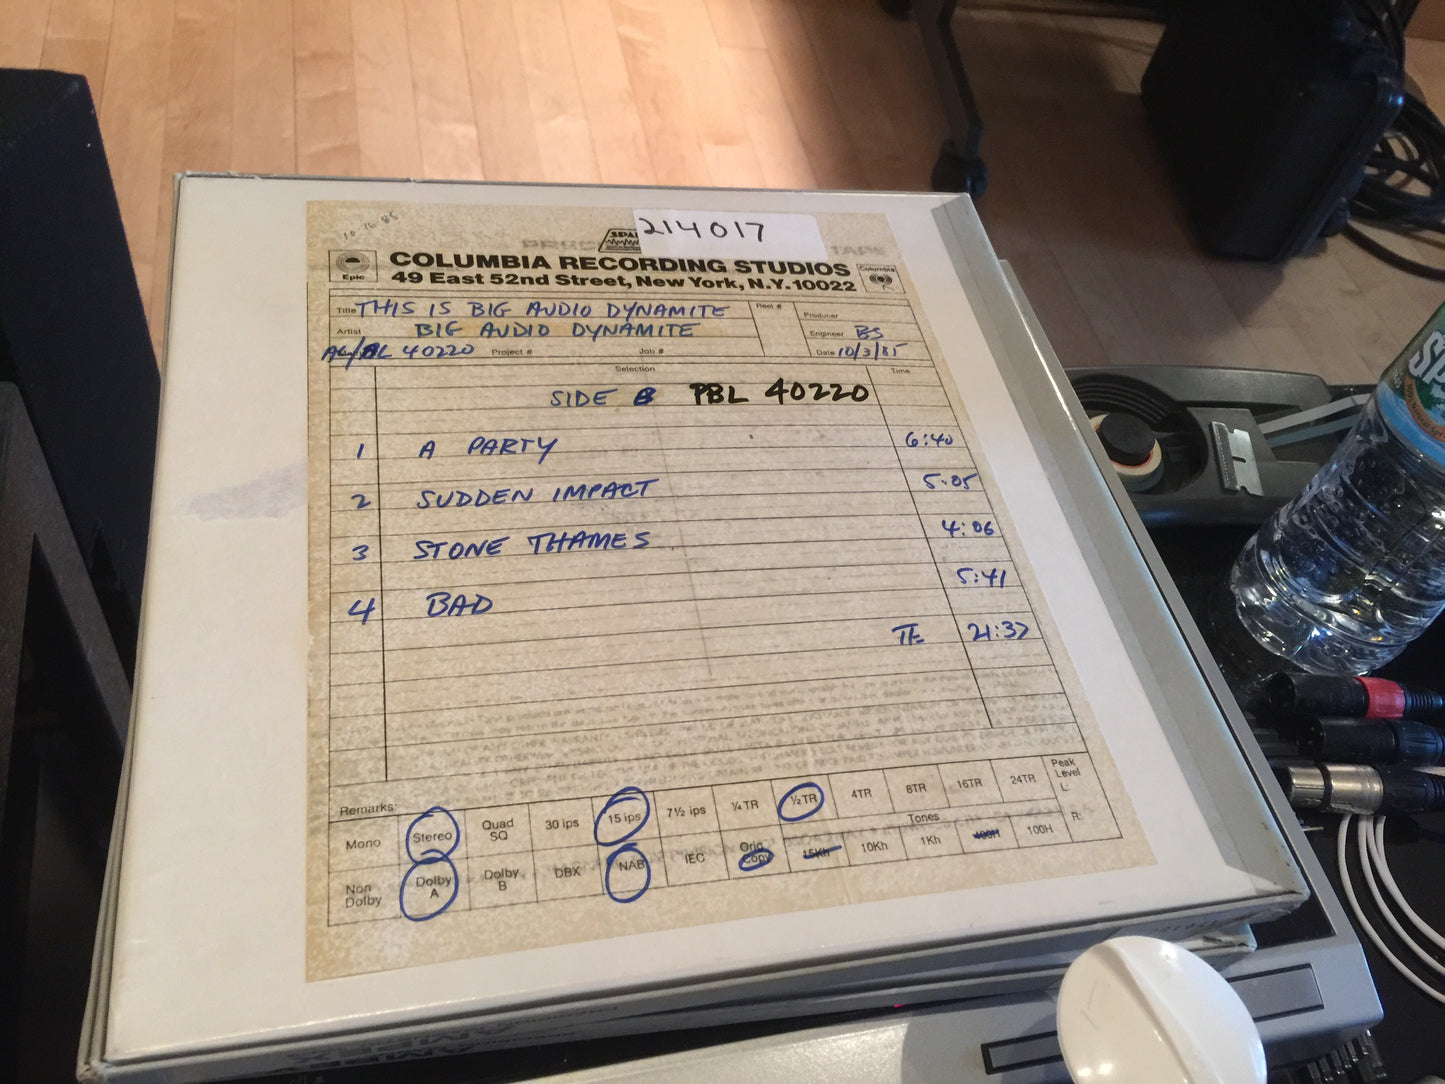 10 16 85
214017
TAPE
Epic
COLUMBIA RECORDING STUDIOS
49 East 52nd Street, New York, N.Y. 10022
Columbia
Title THIS IS BIG AUDIO DYNAMITE
Reel #
Producer
Artist BIG AUDIO DYNAMITE
Engineer BS
AL 40220 Project # Job #
Date 10/3/85
Selection Time
SIDE B PBL 40220
1 A PARTY 6:40
2 SUDDEN IMPACT 5:05
3 STONE THAMES 4:06
4 BAD 5:41
TE 21:37
Remarks:
Mono Stereo Quad SQ 30 ips 15 ips 7½ ips ¼ TR ½ TR 4TR 8TR 16TR 24TR Peak Level L:
Tones
Non Dolby Dolby A Dolby B DBX NAB IEC Orig Copy 15Kh 10Kh 1Kh 400H 100H R:
AMPEX
Sp